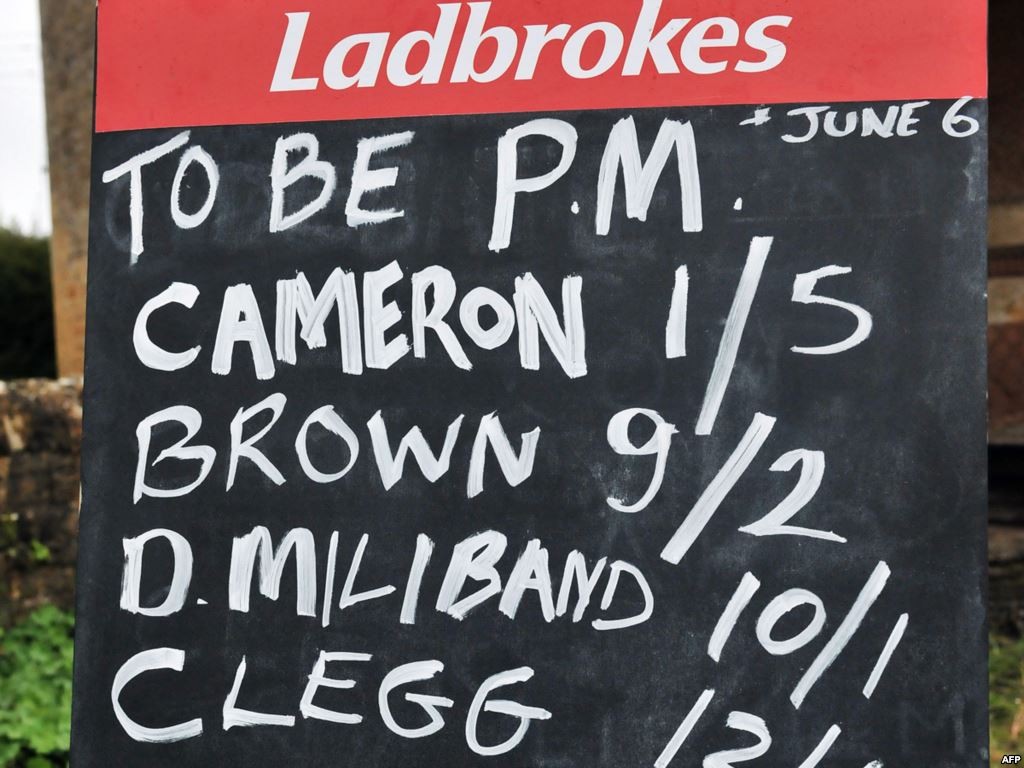 Ladbrokes
* JUNE 6
TO BE P.M.
CAMERON 1/5
BROWN 9/2
D. MILIBAND 10/1
CLEGG 12/1
AFP